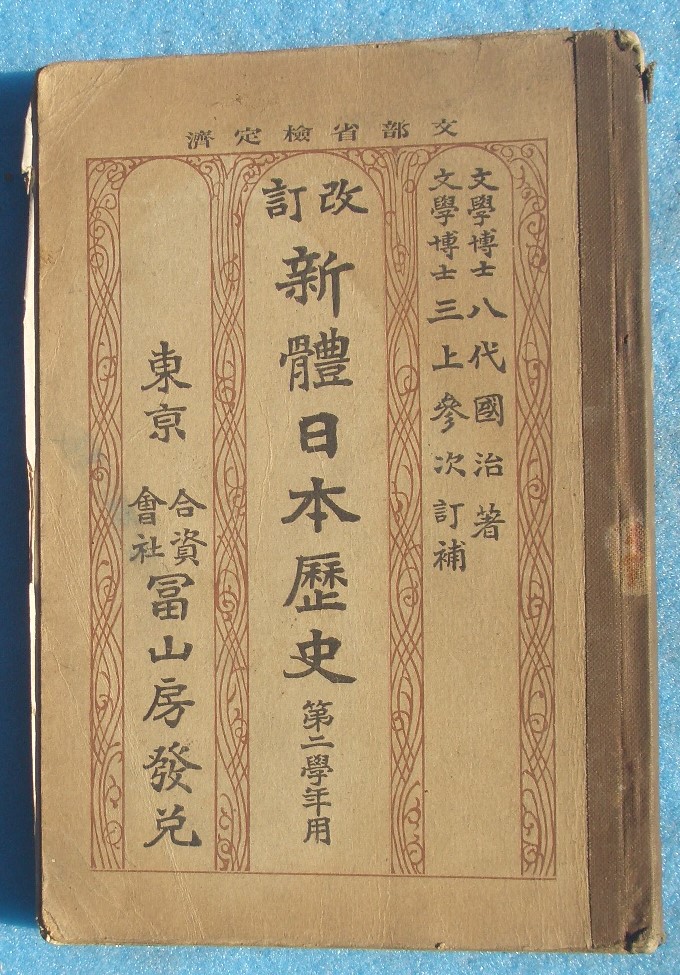 文部省檢定濟
文學博士 八代國治 著
文學博士 三上參次 訂補
改訂
新體日本歷史 第二學年用
東京 合資會社 冨山房發兌